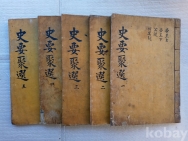 史要聚選 一
史要聚選 二
史要聚選 三
史要聚選 四
史要聚選 五
kobay